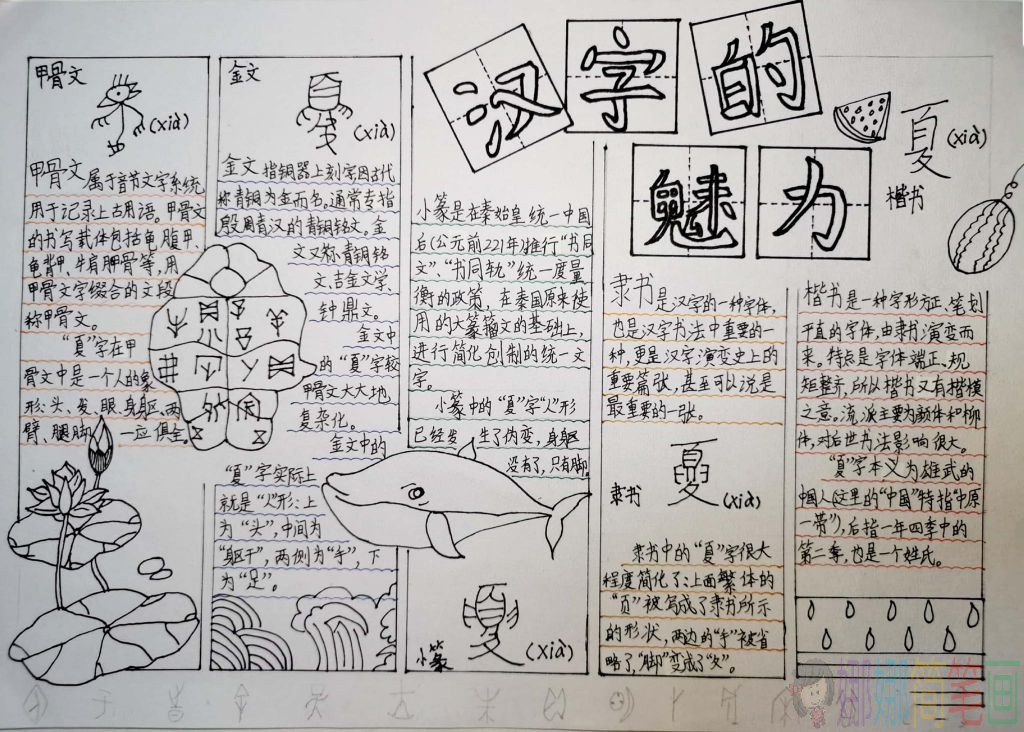 汉字的
魅力
甲骨文
(xià)
甲骨文属于音节文字系统
用于记录上古用语。甲骨文
的书写载体包括龟腹甲、
龟背甲、牛肩胛骨等,用
甲骨文字缀合的文段
称甲骨文。
“夏”字在甲
骨文中是一个人的象
形:头、发、眼、身躯、两
臂、腿脚一应俱全。
金文
(xià)
金文指铜器上刻字因古代
称青铜为金而名。通常专指
殷周青汉的青铜铭文。金
文又称青铜铭
文、吉金文字、
钟鼎文。
金文中
的“夏”字较
甲骨文大大地
复杂化。
金文中的
“夏”字实际上
就是“人”形:上
为“头”,中间为
“躯干”,两侧为“手”,下
为“足”。
小篆是在秦始皇统一中国
后(公元前221年)推行“书同
文”、“书同轨”统一度量
衡的政策,在秦国原来使
用的大篆籀文的基础上,
进行简化创制的统一文
字。
小篆中的“夏”字“人”形
已经发生了伪变,身躯
没有了,只有脚。
小篆
夏
(xià)
隶书是汉字的一种字体,
也是汉字书法中重要的一
种,更是汉字演变史上的
重要篇张,甚至可以说是
最重要的一张。
隶书
夏
(xià)
隶书中的“夏”字很大
程度简化了:上面繁体的
“页”被写成了隶书所示
的形状,两边的“手”被省
略了,“脚”变成了“夂”。
夏
(xià)
楷书
楷书是一种字形方正、笔划
平直的字体,由隶书演变而
来。特点是字体端正、规
矩整齐,所以楷书又有楷模
之意。流派主要为颜体和柳
体,对后世书法影响很大。
“夏”字本义为雄武的
中国人(这里的“中国”特指“中原
一带”),后指一年四季中的
第二季,也是一个姓氏。
娜娜简笔画